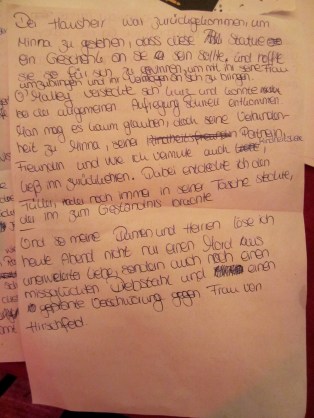 Der Hausherr war zurückgekommen um
Minna zu gestehen, dass diese Statue
ein Geschenk an sie sein sollte, und hoffte
sie so für sich zu um mit ihr seine Frau
umzubringen und ihr Vermögen an sich zu bringen.
O'Malley versteckte sich kurz und konnte
bei der allgemeinen Aufregung schnell entkommen
Man mag es kaum glauben, doch seine Verbunden-
heit zu Minna, seiner Partnerin,
Freundin und wie ich vermute auch Liebe,
ließ ihn zurückkehren. Dabei entdeckte ich den
Füller, noch immer in seiner Tasche steckte,
der ihn zum Geständnis brachte.
Und so meine Damen und Herren löse ich
heute Abend nicht nur einen Mord aus
unerwiderter Liebe, sondern auch noch einen
missglückten Diebstahl und einen
geplante Verschwörung gegen Frau von
Hirschfeld